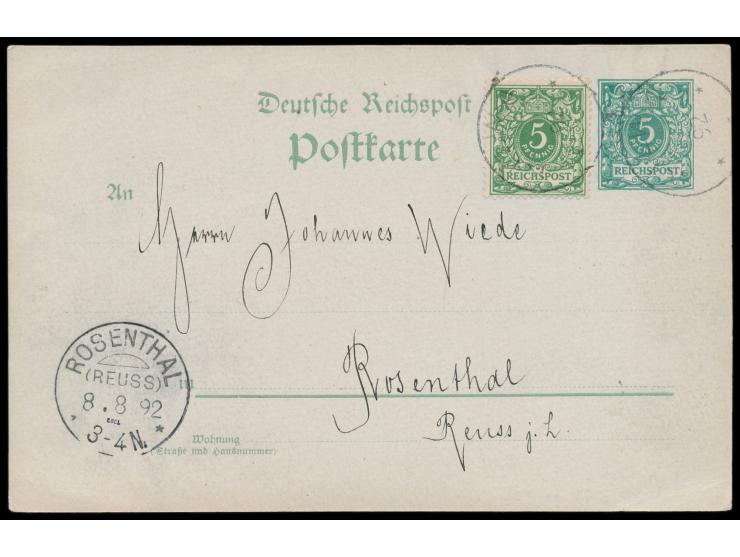 Deutsche Reichspost
Postkarte
5
PFENNIG
REICHSPOST
5
PFENNIG
REICHSPOST
76
An
Herrn Johannes Wiede
in
Rosenthal
Reuss j. L.
Wohnung
(Straße und Hausnummer)
ROSENTHAL
(REUSS)
8.8 92
3-4N.